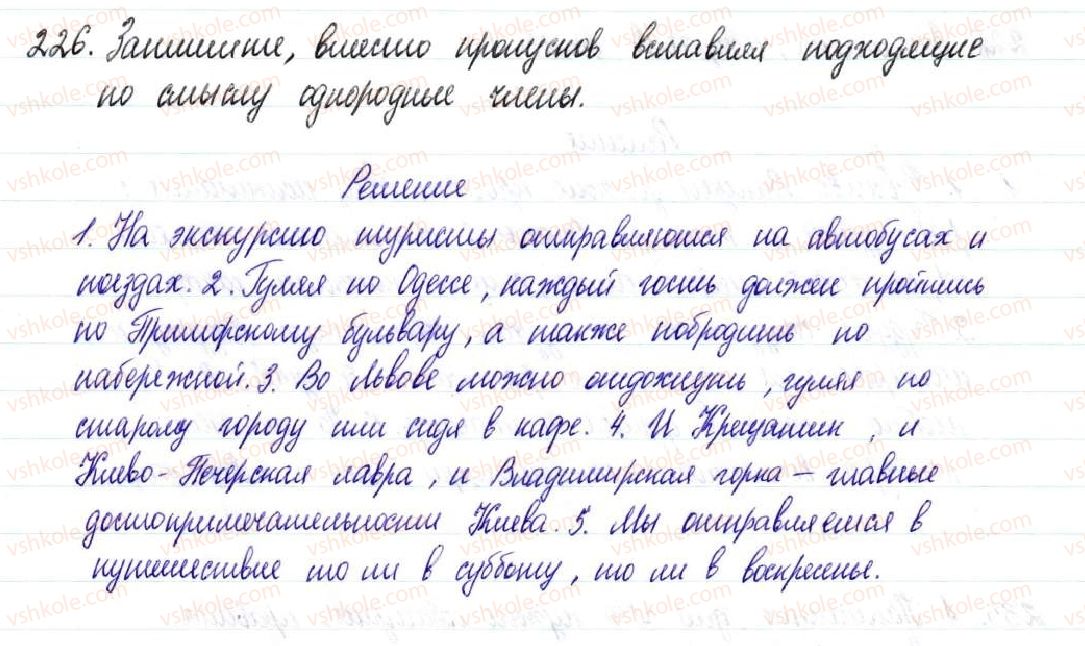 226. Запишите, вместо пропусков вставляя подходящие
по смыслу однородные члены.
Решение
1. На экскурсию туристы отправляются на автобусах и
поездах. 2. Гуляя по Одессе, каждый гость должен пройтись
по Приморскому бульвару, а также побродить по
набережной. 3. Во Львове можно отдохнуть, гуляя по
старому городу или сидя в кафе. 4. И Крещатик, и
Киево-Печерская лавра, и Владимирская горка – главные
достопримечательности Киева. 5. Мы отправляемся в
путешествие то ли в субботу, то ли в воскресенье.